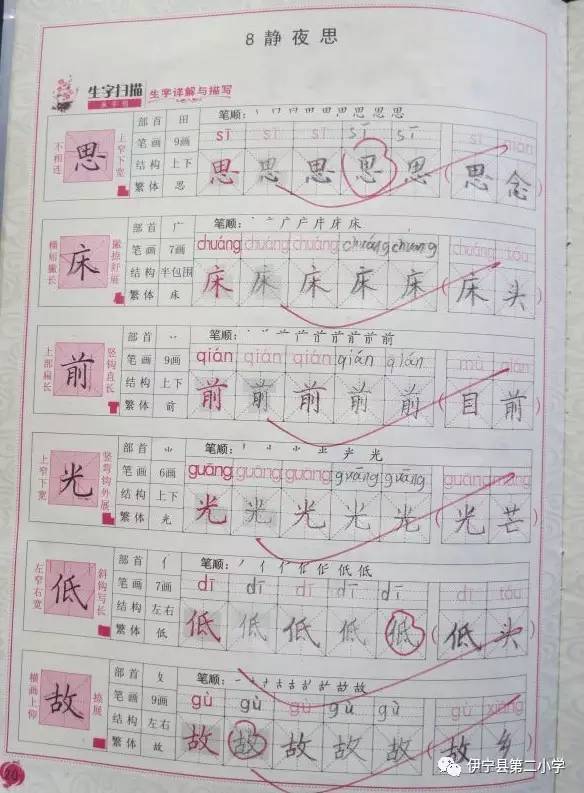 8 静夜思
生字扫描 生字详解与描写
不相连 思 上窄下宽
部首 田 笔顺:
笔画 9画 sī sī sī sī sī sī niàn
结构 上下 思 思 思 思 思 ( 思 念 )
繁体 思
横短撇长 床 撇捺舒展
部首 广 笔顺: 丶 亠 广 庁 庄 床 床
笔画 7画 chuáng chuáng chuáng chuáng chuáng chuáng tóu
结构 半包围 床 床 床 床 床 ( 床 头 )
繁体 床
上部扁长 前 竖钩直长
部首 丷 笔顺:
笔画 9画 qián qián qián qián qián mù qián
结构 上下 前 前 前 前 前 ( 目 前 )
繁体 前
上窄下宽 光 竖弯钩外展
部首 ⺌ 笔顺:
笔画 6画 guāng guāng guāng guāng guāng guāng máng
结构 上下 光 光 光 光 光 ( 光 芒 )
繁体 光
左窄右宽 低 斜钩写长
部首 亻 笔顺:
笔画 7画 dī dī dī dī dī dī tóu
结构 左右 低 低 低 低 低 ( 低 头 )
繁体 低
横画上仰 故 捺展
部首 攵 笔顺:
笔画 9画 gù gù gù gù gù gù xiāng
结构 左右 故 故 故 故 故 ( 故 乡 )
繁体 故
伊宁县第二小学